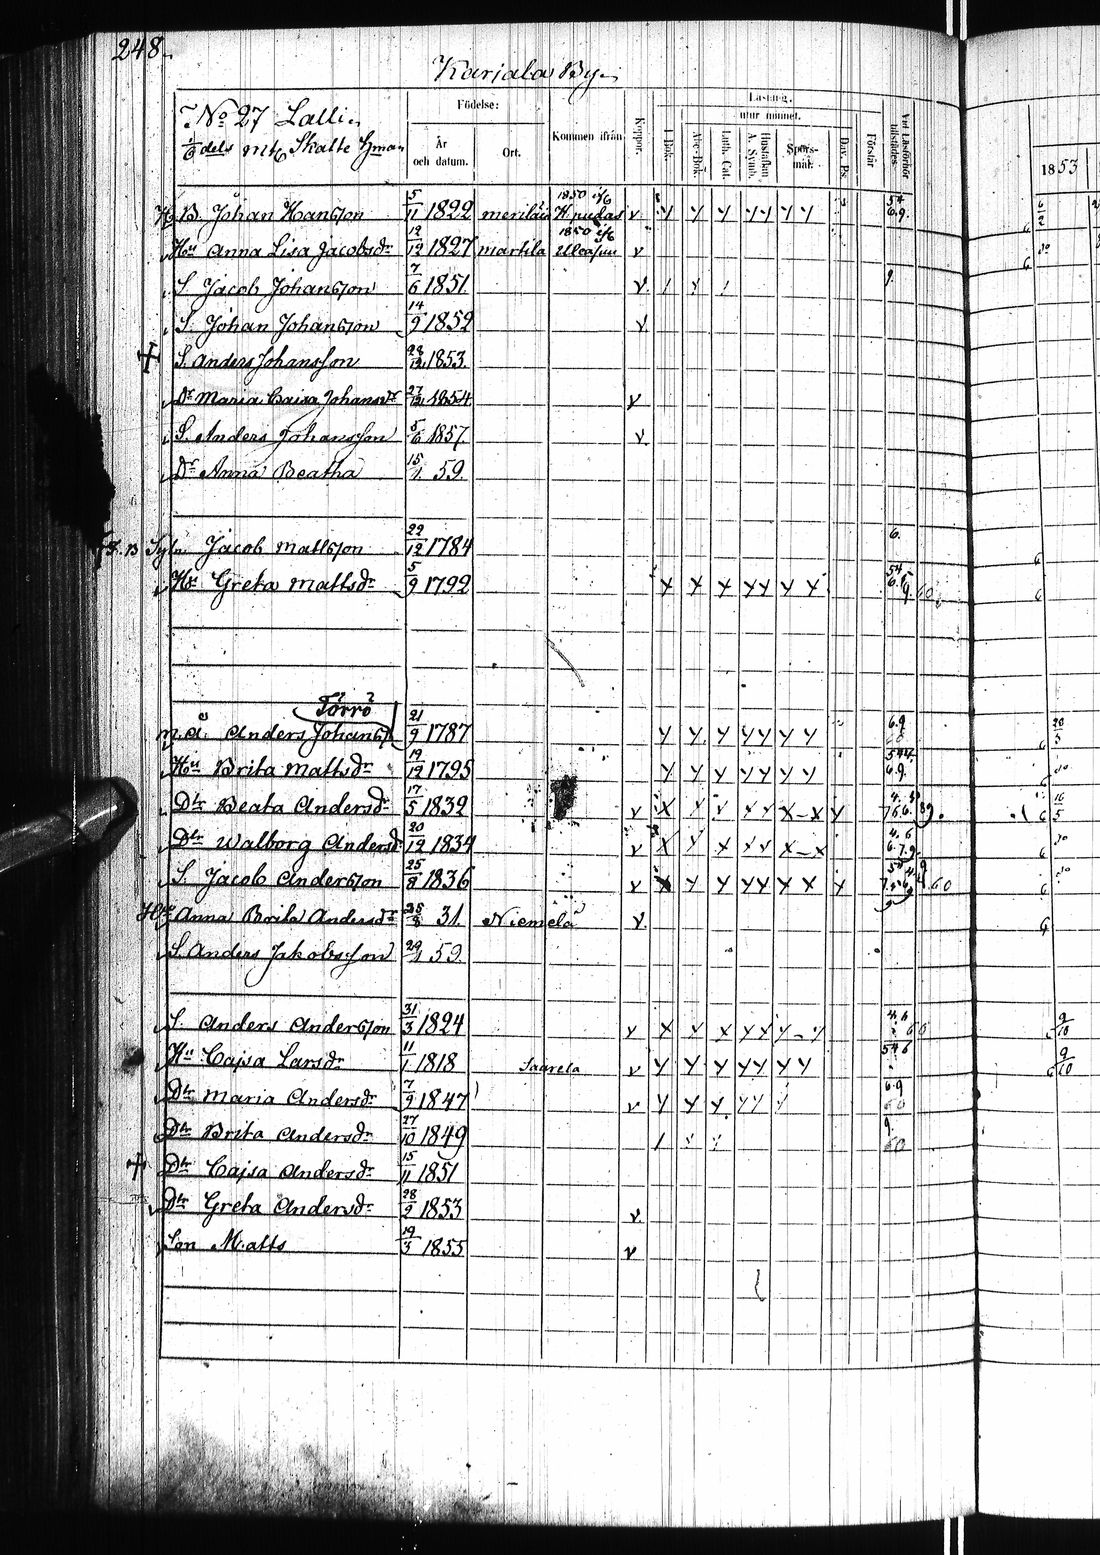 248.
Karjala By.
No 27 Lalli.
dels mtl Skatte Hman
Födelse:
År och datum.
Ort.
Kommen ifrån
Koppor.
Läsning.
utur minnet.
I Bok.
Abc-Bok
Luth. Cat.
Hustaflan A. Symb.
Spörs-mål.
Dav. Ps.
Förstår
Vid Läsförhör tillstädes.
1853
B. Johan Hansson 5/11 1822 merilä 1850 H pudas v 54 6.9. 6/2
Hu Anna Lisa Jacobsdr 12/12 1827 martila 1850 v do
S. Jacob Johansson 7/6 1851. v 9.
S. Johan Johansson 14/9 1852 v
S. Anders Johansson 1853.
Dr Maria Caisa Johansdr 27/12 1854 v
S. Anders Johansson 5/6 1857. v
Dr Anna Beatha 15/1 59.
Jacob Mattsson 22/12 1784 6. 6
Hu Greta Mattsdr 5/9 1792 x x x x x x x 54 6. 9. 60 6
Törrö
Anders Johanss 21/9 1787 y y y y y y y 6.9 20/3
Hu Brita Mattsdr 19/12 1795 y y y y y y y 544. 6.9. 6 do
Dtr Beata Andersdr 17/5 1832 v 6 16/5
Dtr Walborg Andersdr 20/12 1834 v 4.6 6.7.9. 6 do
S. Jacob Andersson 25/8 1836 v 60 6 do
Anna Brita Andersdr 25/8 31. Niemelä v. 6
S. Anders Jakobsson 59
S. Anders Andersson 31/3 1824 v 4.6 60 9/10
Hu Cajsa Larsdr 11/1 1818 Saarela v y y y y y y y 546 6 9/10
Dtr Maria Andersdr 7/9 1847 v 6.9 60
Dtr Brita Andersdr 27/10 1849 9. 60
Dtr Cajsa Andersdr 15/11 1851
Dtr Greta Andersdr 28/2 1853 v
Son Matts 19/3 1855 v